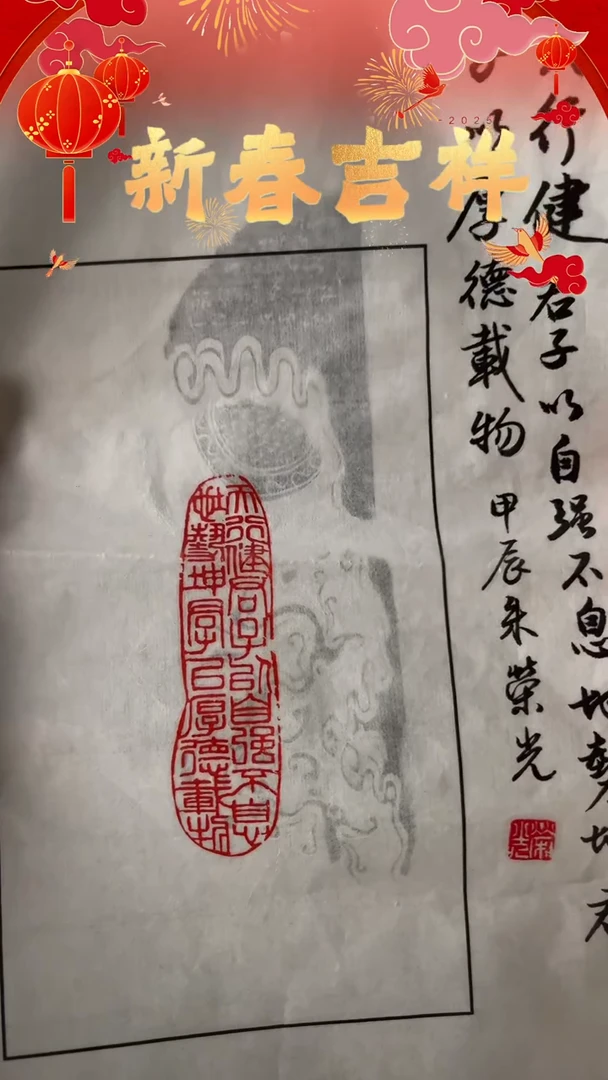 2025
新春吉祥
行健 君子以自强不息 地勢坤 君
子以厚德載物 甲辰 榮光
天行健君子以自强不息
地勢坤君子以厚德載物
榮光